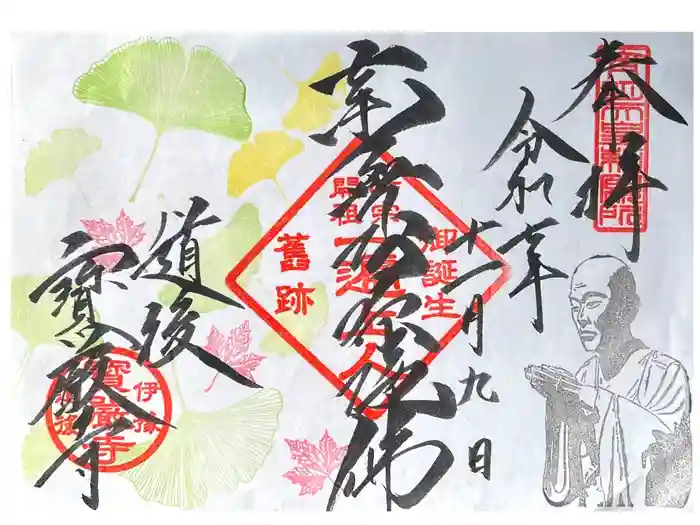 奉拝
令和
年
十一月九日
南無阿弥陀佛
御誕生
時宗
開祖
一遍上人
舊跡
道後
寶嚴寺
伊豫
寶嚴寺
道後